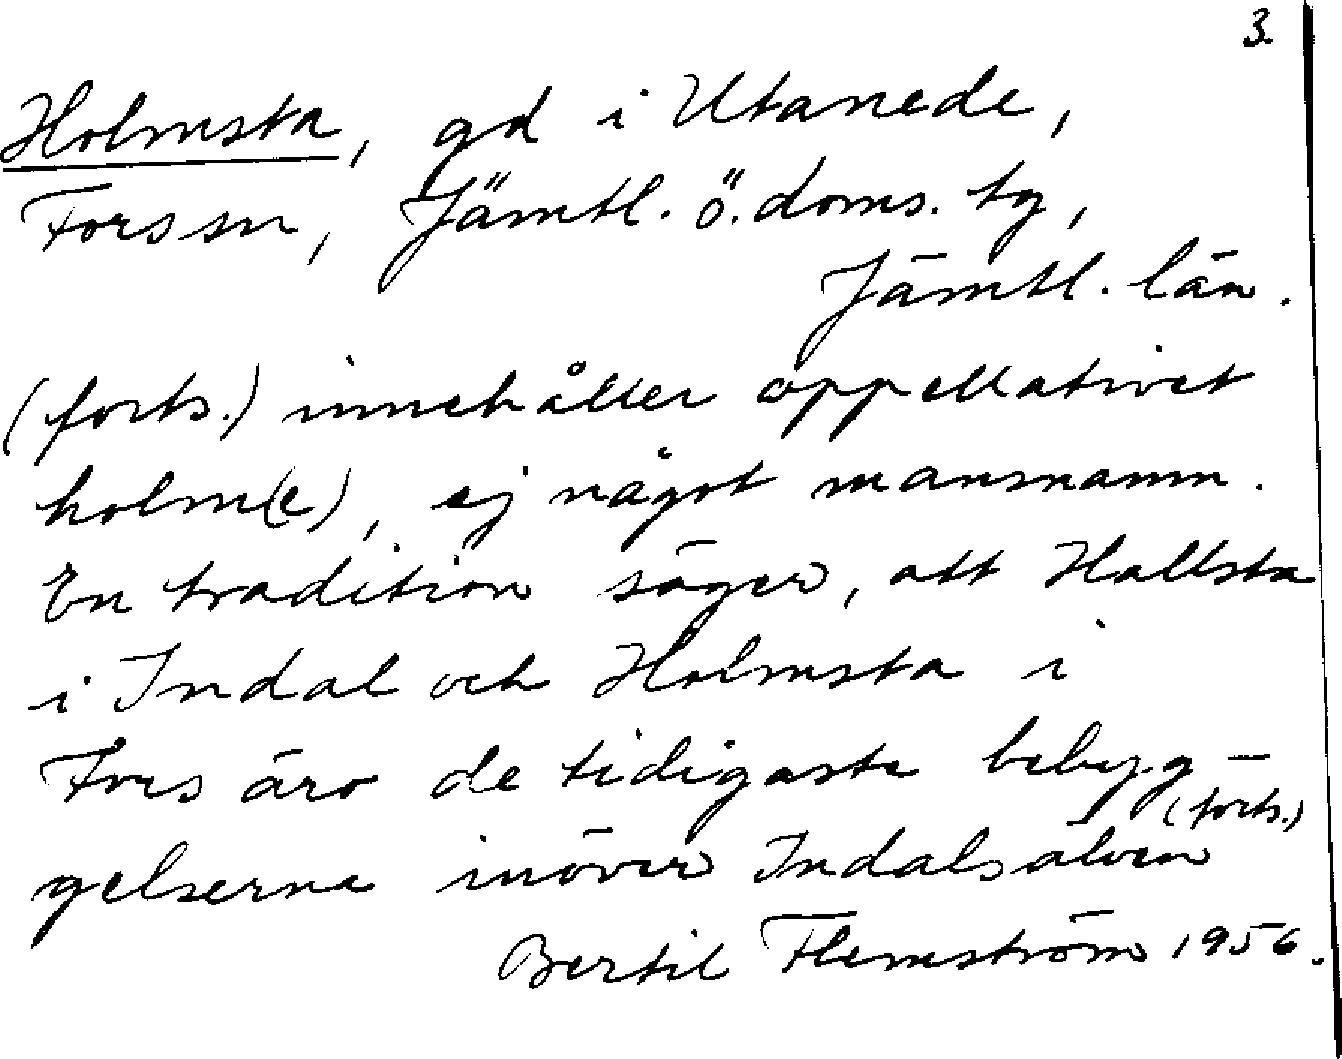 3.
Holmsta, gd i Utanede,
Forssn, Jämtl. ö. doms. tg,
Jämtl. län.
(forts.) innehåller appellativet
holm(e), ej något mansnamn.
En tradition säger, att Hallsta
i Indal och Holmsta i
Fors äro de tidigaste bebyg-
gelserna inöver Indalsälven
(forts.)
Bertil Flemström 1956.